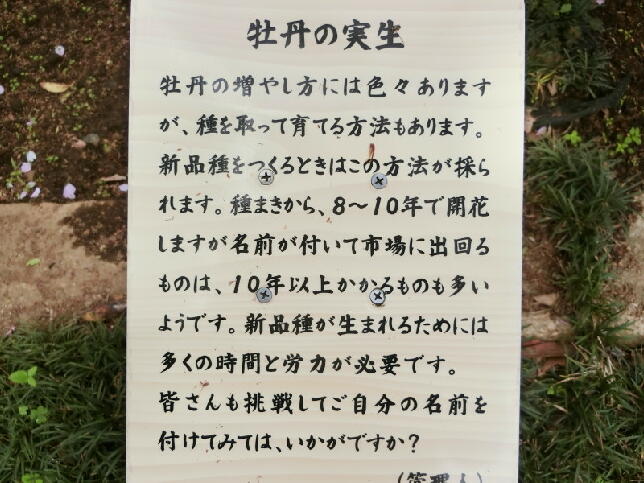 牡丹の実生
牡丹の増やし方には色々あります
が、種を取って育てる方法もあります。
新品種をつくるときはこの方法が採ら
れます。種まきから、8〜10年で開花
しますが名前が付いて市場に出回る
ものは、10年以上かかるものも多い
ようです。新品種が生まれるためには
多くの時間と労力が必要です。
皆さんも挑戦してご自分の名前を
付けてみては、いかがですか?